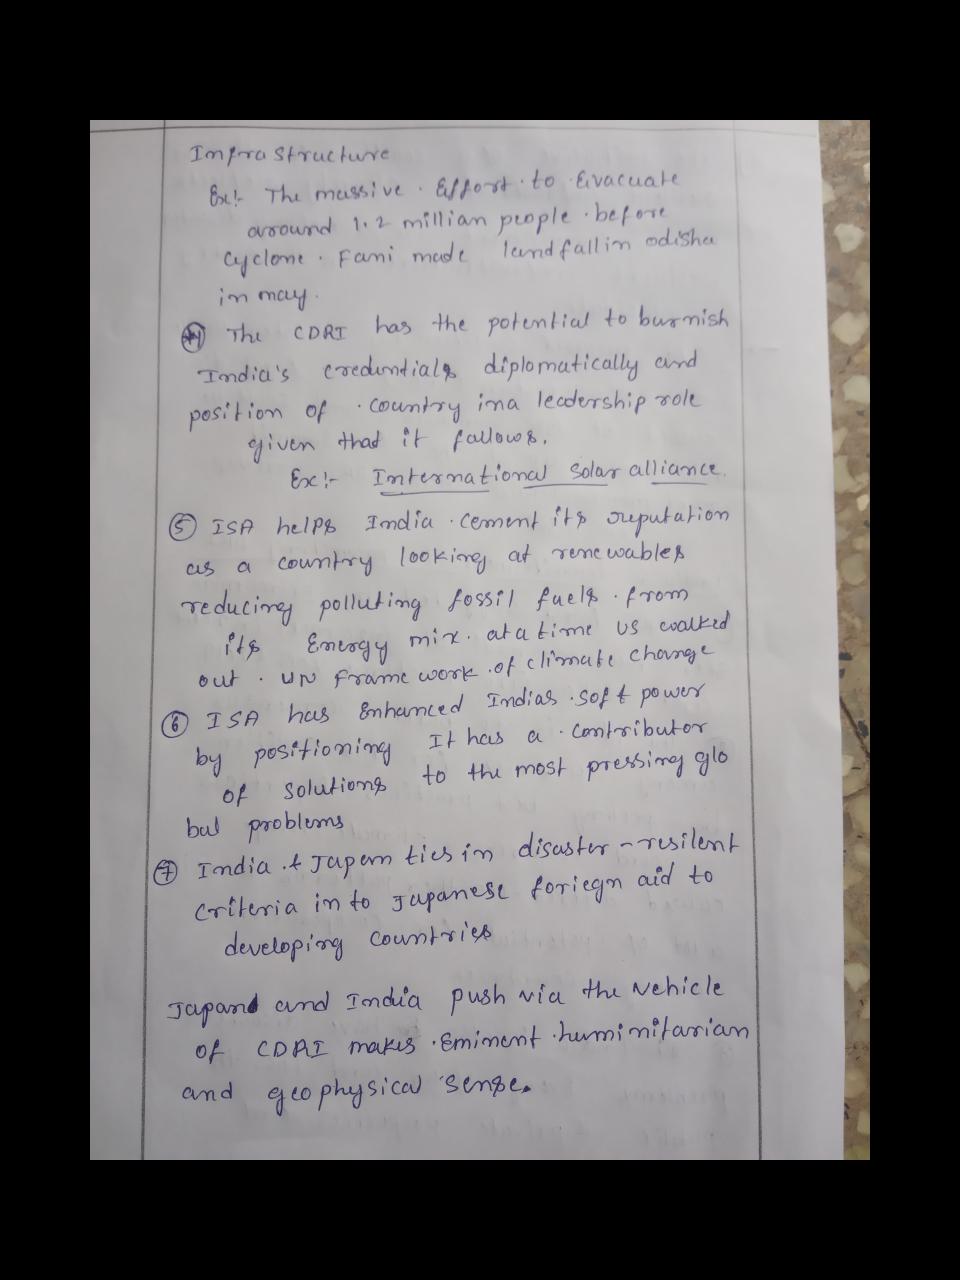 Infra structure
Ex:- The massive . Effort . to . Evacuate
around 1.2 millian people . before
cyclone . Fani made landfall in odisha
in may.
④ The CDRI has the potential to burnish
India's credentials diplomatically and
position of . country in a leadership role
given that it fallows.
Ex:- International Solar alliance.
⑤ ISA helps India . cement its reputation
as a country looking at renewables
reducing polluting fossil fuels . from
its Energy mix. at a time US walked
out . UN frame work . of climate change
⑥ ISA has Enhanced Indias . soft power
by positioning It has a . contributor
of solutions to the most pressing glo
bal problems
⑦ India . & Japan ties in disaster - resilent
criteria in to Japanese foriegn aid to
developing countries
Japan and India push via the vehicle
of CDRI makes . Eminent . huminitarian
and geophysical sense.